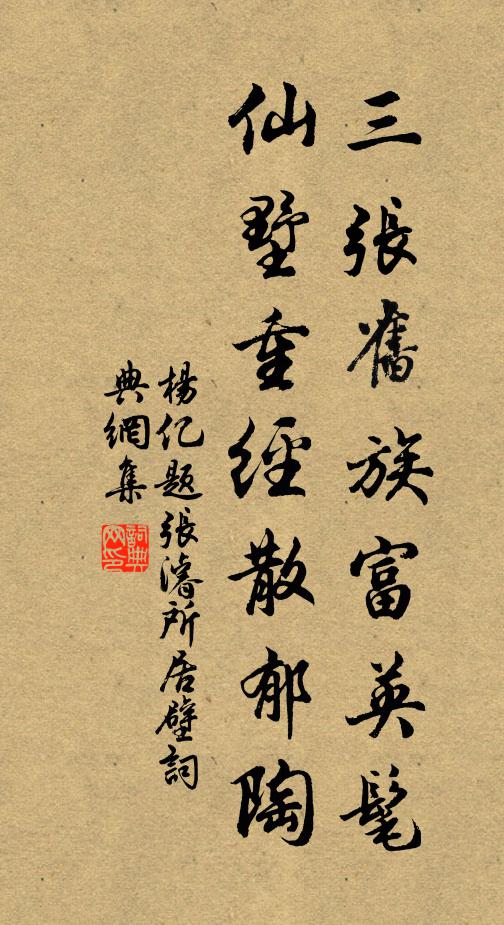 三張舊族富英髦
仙墅重經散郁陶
楊億題張濬所居壁詞
典網集
詞典
网印